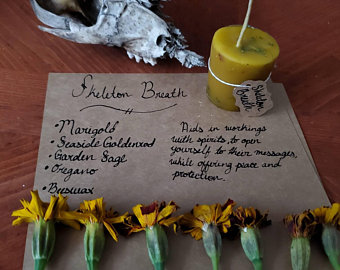 Skeleton Breath
• Marigold
• Seaside Goldenrod
• Garden Sage
• Oregano
• Beeswax
Aids in workings
with spirits, to open
yourself to their messages,
while offering peace and
protection.
Skeleton
Breath